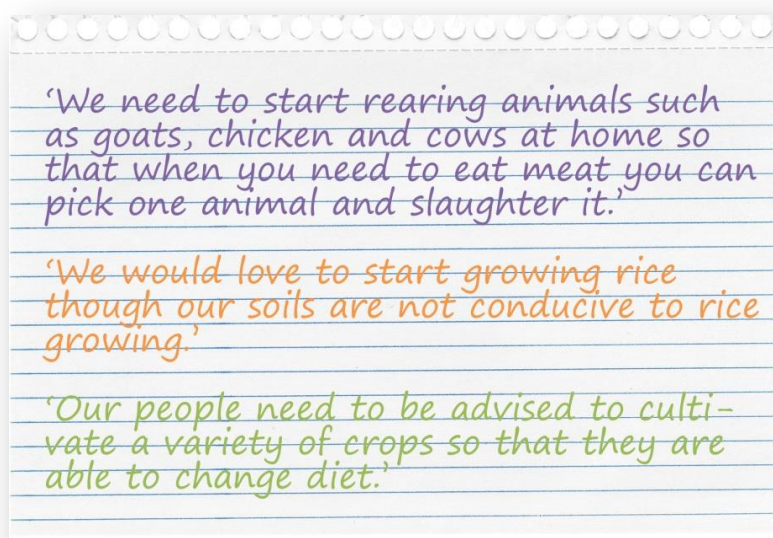 ‘We need to start rearing animals such
as goats, chicken and cows at home so
that when you need to eat meat you can
pick one animal and slaughter it.’
‘We would love to start growing rice
though our soils are not conducive to rice
growing.’
‘Our people need to be advised to culti-
vate a variety of crops so that they are
able to change diet.’